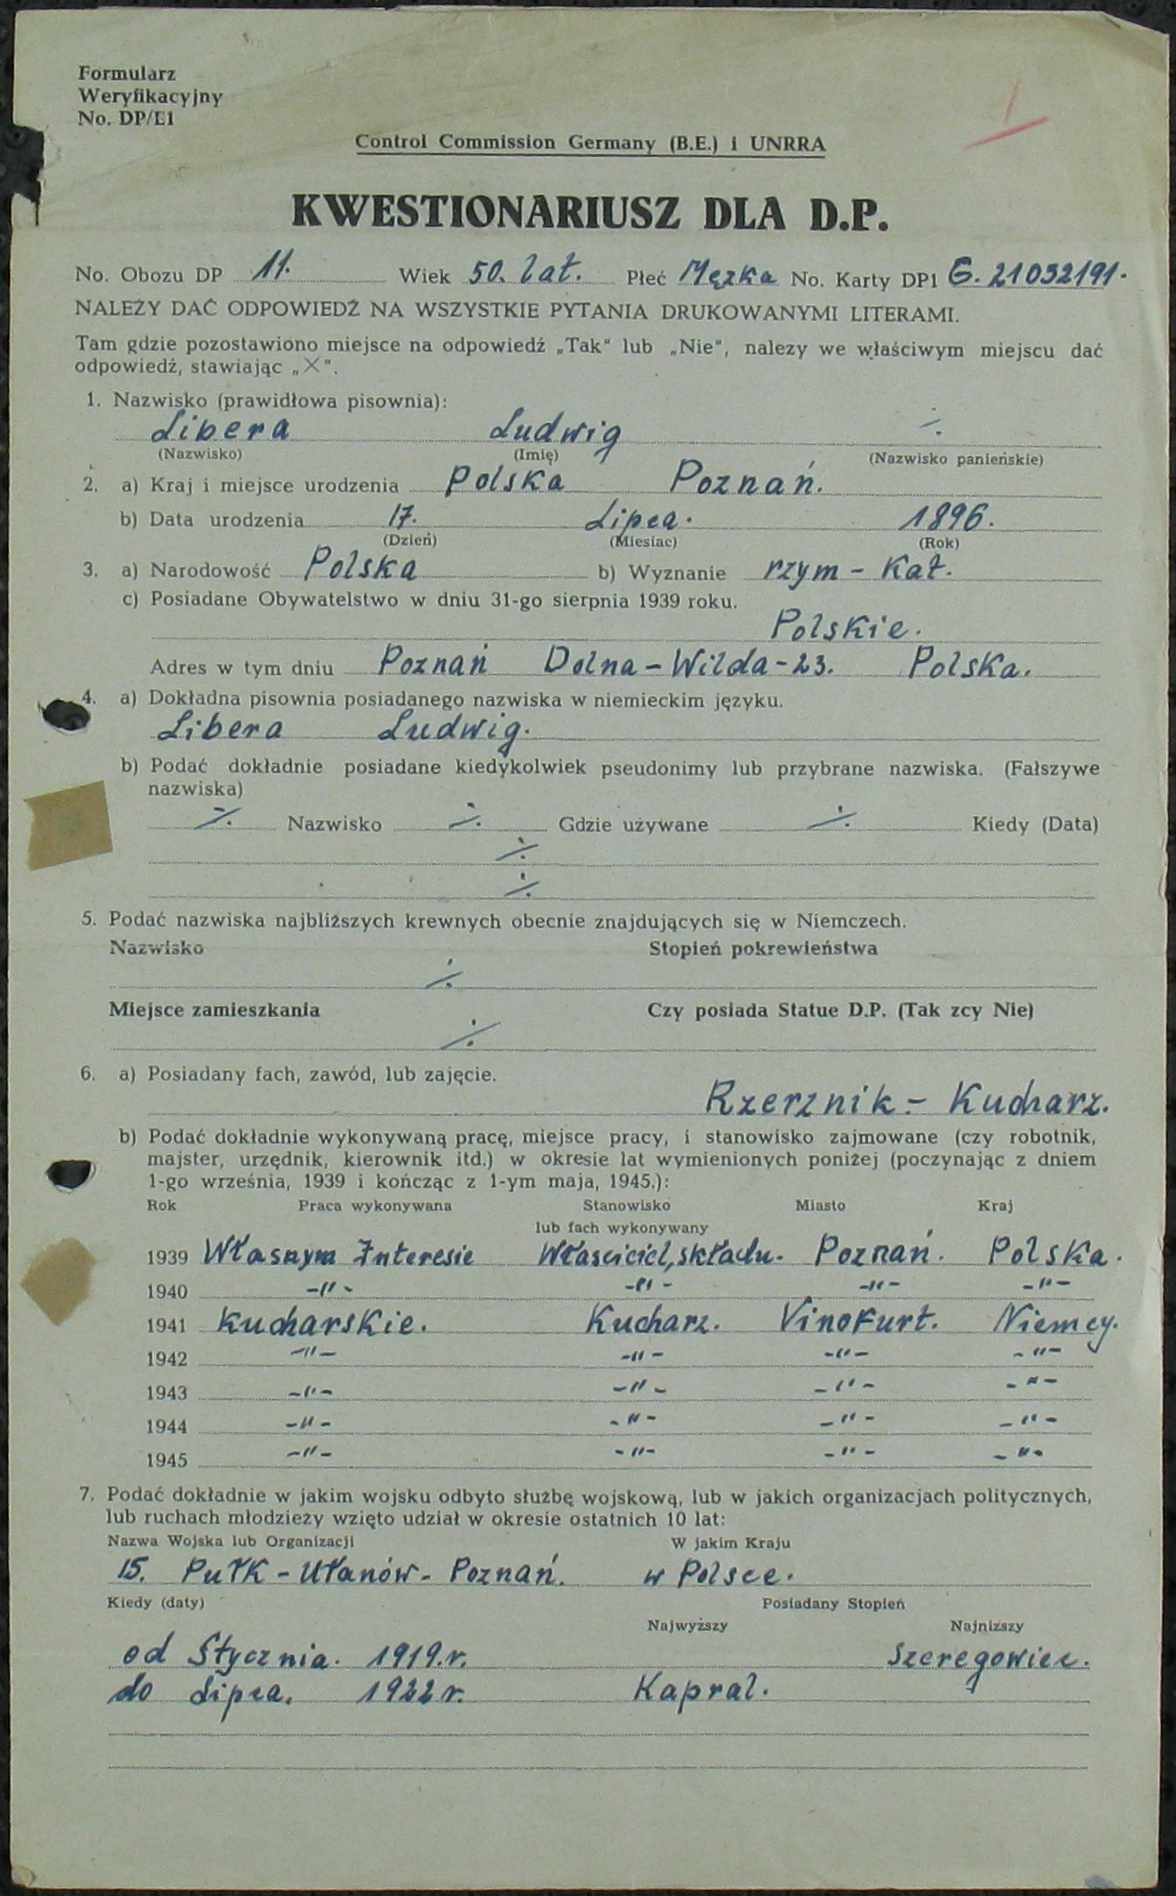 Formularz
Weryfikacyjny
No. DP/E1
Control Commission Germany (B.E.) i UNRRA
KWESTIONARIUSZ DLA D.P.
No. Obozu DP 11. Wiek 50. lat. Płeć Męzka No. Karty DP1 G. 21032191.
NALEŻY DAĆ ODPOWIEDŹ NA WSZYSTKIE PYTANIA DRUKOWANYMI LITERAMI.
Tam gdzie pozostawiono miejsce na odpowiedź „Tak" lub „Nie", nalezy we właściwym miejscu dać
odpowiedź, stawiając „X".
1. Nazwisko (prawidłowa pisownia):
Libera Ludwig ./.
(Nazwisko) (Imię) (Nazwisko panieńskie)
2. a) Kraj i miejsce urodzenia Polska Poznań.
b) Data urodzenia 17. Lipca. 1896.
(Dzień) (Miesiac) (Rok)
3. a) Narodowość Polska b) Wyznanie rzym - Kat.
c) Posiadane Obywatelstwo w dniu 31-go sierpnia 1939 roku.
Polskie.
Adres w tym dniu Poznań Dolna - Wilda - 23. Polska.
4. a) Dokładna pisownia posiadanego nazwiska w niemieckim języku.
Libera Ludwig.
b) Podać dokładnie posiadane kiedykolwiek pseudonimy lub przybrane nazwiska. (Fałszywe
nazwiska)
./. Nazwisko ./. Gdzie używane ./. Kiedy (Data)
./.
./.
5. Podać nazwiska najbliższych krewnych obecnie znajdujących się w Niemczech.
Nazwisko Stopień pokrewieństwa
./.
Miejsce zamieszkania Czy posiada Statue D.P. (Tak zcy Nie)
./.
6. a) Posiadany fach, zawód, lub zajęcie.
Rzerznik - Kucharz.
b) Podać dokładnie wykonywaną pracę, miejsce pracy, i stanowisko zajmowane (czy robotnik,
majster, urzędnik, kierownik itd.) w okresie lat wymienionych poniżej (poczynając z dniem
1-go września, 1939 i kończąc z 1-ym maja, 1945.):
Rok Praca wykonywana Stanowisko Miasto Kraj
lub fach wykonywany
1939 Własnym Interesie Właściciel, składu. Poznań. Polska.
1940 -"- -"- -"- -"-
1941 Kucharskie. Kucharz. Vinofurt. Niemcy.
1942 -"- -"- -"- -"-
1943 -"- -"- -"- -"-
1944 -"- -"- -"- -"-
1945 -"- -"- -"- -"-
7. Podać dokładnie w jakim wojsku odbyto służbę wojskową, lub w jakich organizacjach politycznych,
lub ruchach młodzieży wzięto udział w okresie ostatnich 10 lat:
Nazwa Wojska lub Organizacji W jakim Kraju
15. Pułk - Ułanów - Poznań. w Polsce.
Kiedy (daty) Posiadany Stopień
Najwyższy Najniższy
od Stycznia. 1919.r. Szeregowiec.
do Lipca. 1922 r. Kapral.